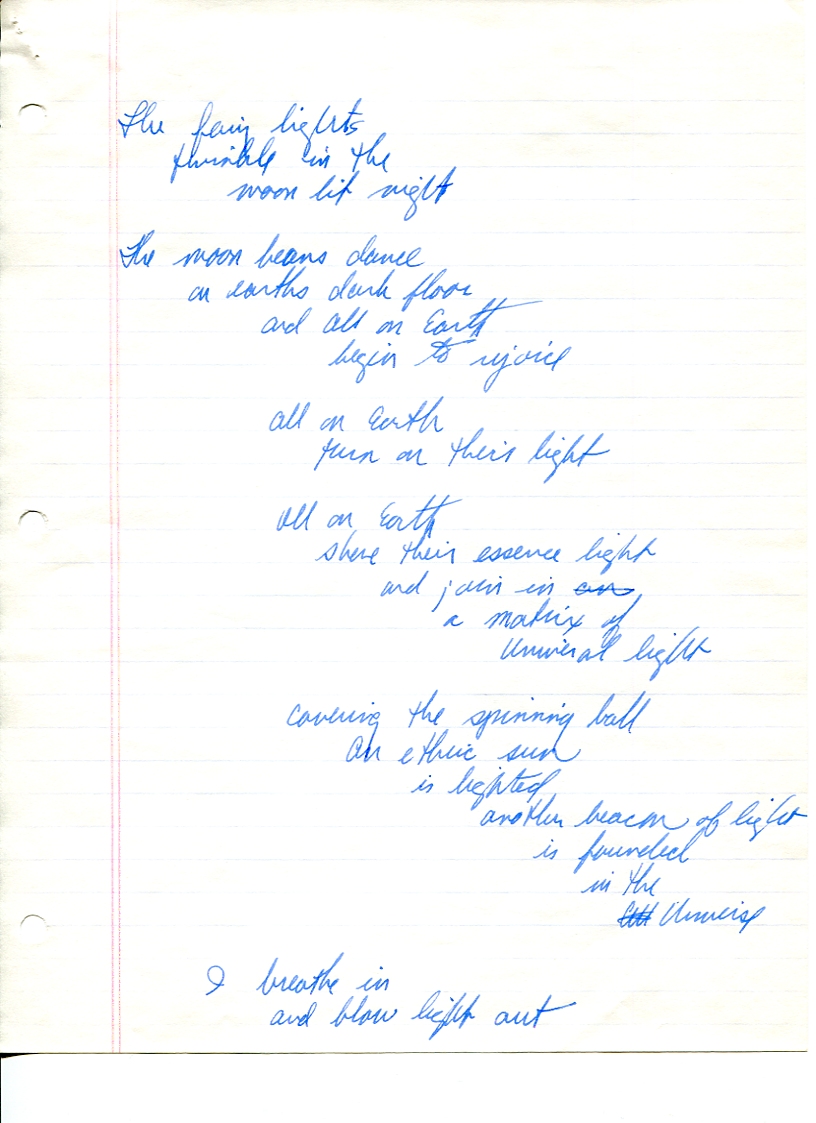 The fairy lights
twinkle in the
moon lit night
The moon beams dance
on earths dark floor
and all on Earth
begin to rejoice
all on Earth
turn on their light
all on Earth
share their essence light
and join in an
a matrix of
Universal light
covering the spinning ball
An etheric sun
is lighted
another beacon of light
is founded
in the
Universe
I breathe in
and blow light out